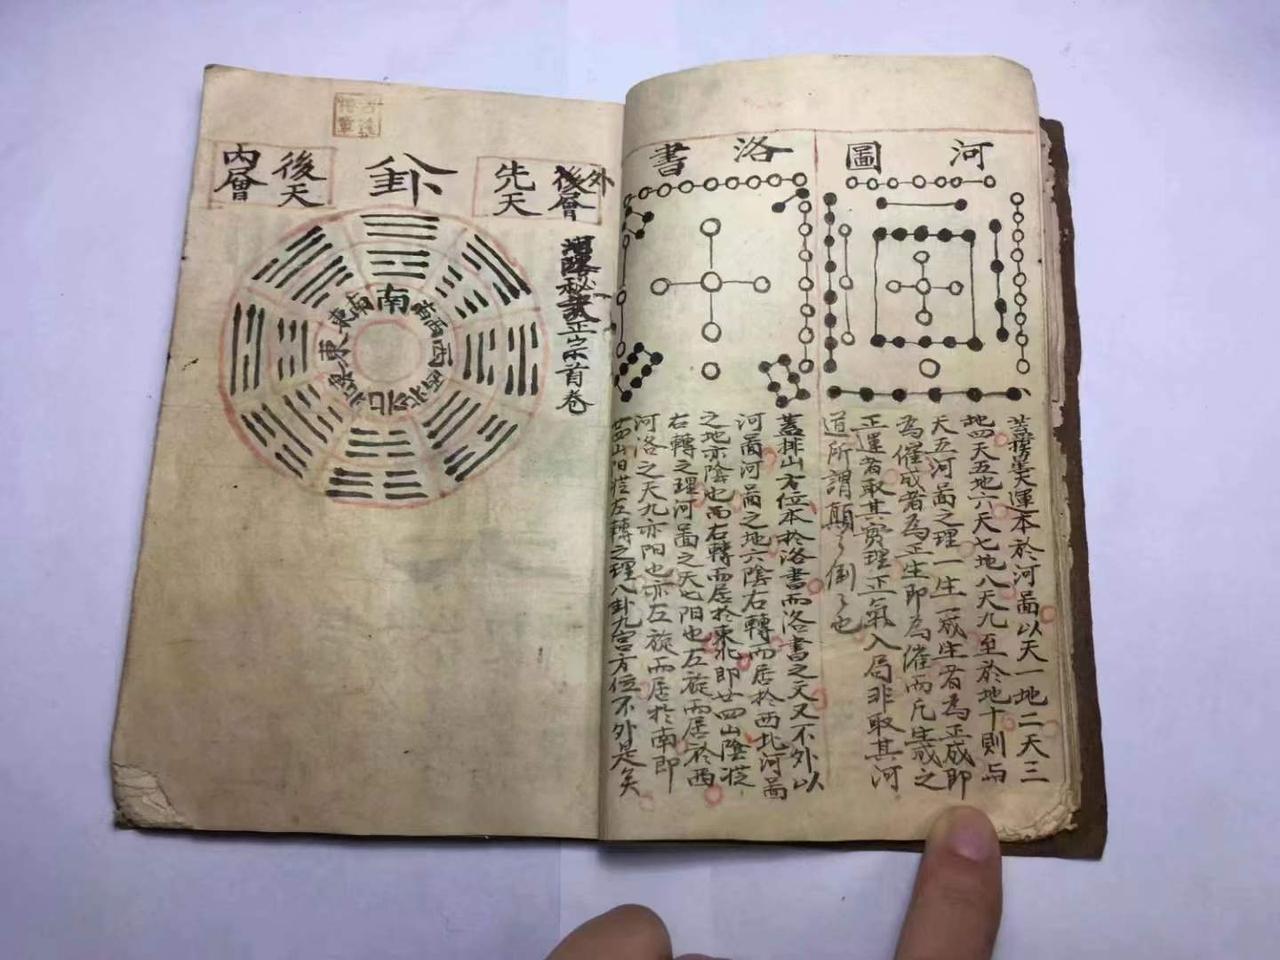 河圖
蓋撈星天運本於河啚以天一地二天三
地四天五地六天七地八天九至於地十則与
天五河啚之理一生一成生者為正成即
為催成者為正生即為催而凡生成之
正運者取其實理正氣入局非取其河
道所謂顛〻倒〻也
洛書
蓋排山方位本於洛書而洛書之文又不外以
河啚河啚之地六陰右轉而居於西北河啚
之地亦陰也而右轉而居於東北即廿四山陰從
右轉之理河啚之天七陽也左旋而居於西
河洛之天九亦阳也亦左旋而居於南即
廿四山阳從左轉之理八卦九宮方位不外是矣
正宗首卷
外層
先天
卦
後天
內層
南
西南
西
西北
北
東北
東
東南